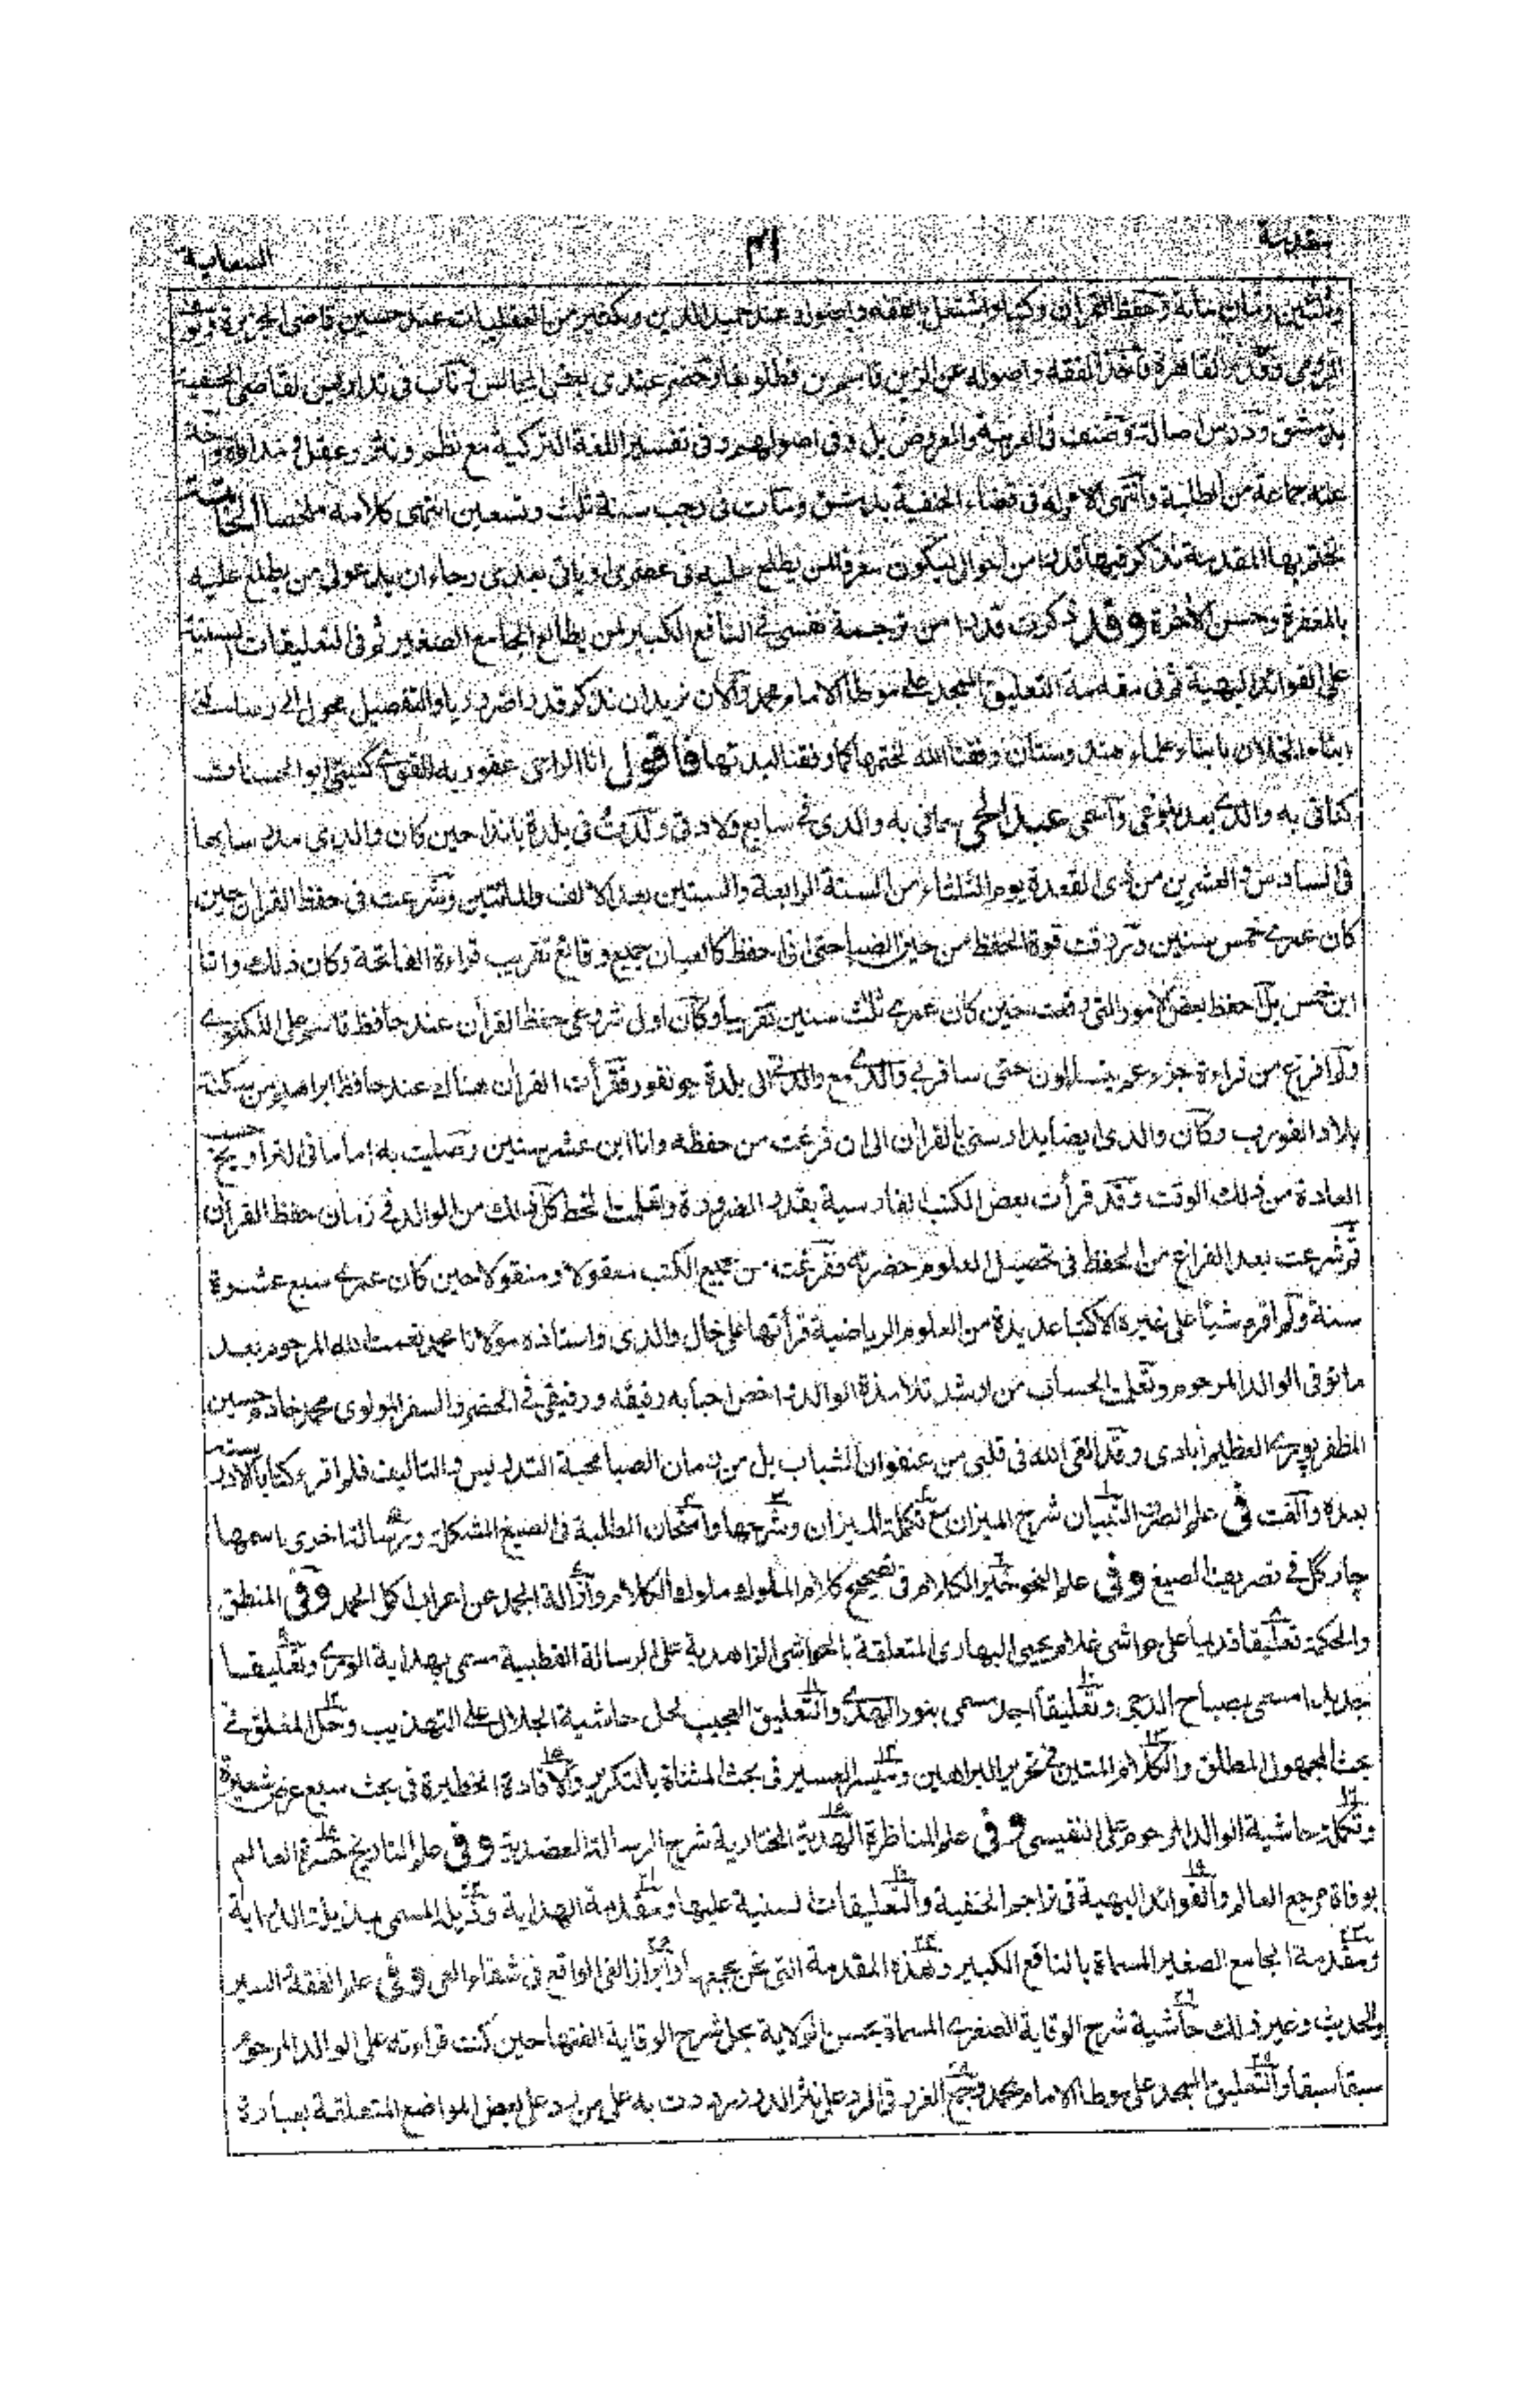 مقدمة ٤١ السعاية
وثلثين وثمان مائة وحفظ القرآن وكتبا واشتغل بالفقه واصوله عند حميد الدين وبكثير من العقليات عند حسين قاضى الجزيرة
الرومى وقدم القاهرة فأخذ الفقه واصوله عن الزين قاسم بن قطلوبغا وحضر عندى بعض المجالس وناب فى تدريس لقاضى الحنفية
بدمشق ودرس اصالة وصنف فى العربية والعروض بل وفى اصولهم وفى تفسير اللغة التركية مع نظم ونثر وعقل ومداراة
عنه جماعة من الطلبة وانتهى الامر له فى قضاء الحنفية بدمشق ومات فى رجب سنة ثلث وتسعين انتهى كلامه ملخصا الخاتمة
نختم بها المقدمة نذكر فيها قدرا من احوالى ليكون معرفا لمن يطلع عليه فى عصرى او ياتى بعدى رجاء ان يدعو لى من يطلع عليه
بالمغفرة وحسن الآخرة وقد ذكرت قدرا من ترجمة نفسى فى النافع الكبير لمن يطالع الجامع الصغير ثم فى التعليقات السنية
على الفوائد البهية ثم فى مقدمة التعليق الممجد على موطا الامام محمد والآن نريد ان نذكر قدرا ضروريا والتفصيل محول الى رسالتى
انباء الخلان بانباء علماء هندوستان وفقنا الله لختمها كما وفقنا لبدئها فاقول انا الراجى عفو ربه القوى كنيتى ابو الحسنات
كنانى به والدى بعد بلوغى واسمى عبد الحى سمانى به والدى فى سابع ولادتى ولدت فى بلدة باندا حين كان والدى مدرسا بها
فى السادس والعشرين من ذى القعدة يوم الثلثاء من السنة الرابعة والستين بعد الالف والمائتين وشرعت فى حفظ القرآن حين
كان عمرى خمس سنين ورزقت قوة الحفظ من حين الصبا حتى انى احفظ كالعيان جميع وقائع تقريب قراءة الفاتحة وكان ذلك وانا
ابن خمس بل احفظ بعض الامور التى وقعت حين كان عمرى ثلث سنين تقريبا وكان اول شروعى حفظ القرآن عند حافظ قاسم على اللكنوى
ولم افرغ من قراءة جزء عم يتساءلون حتى سافر بى والدى مع والدتى الى بلدة جونفور فقرأت القرآن هناك عند حافظ ابراهيم من سكنة
بلاد الفورب وكان والدى ايضا يدارسنى بالقرآن الى ان فرغت من حفظه وانا ابن عشر سنين وصليت به اماما فى التراويح حسب
العادة من ذلك الوقت وقد قرأت بعض الكتب الفارسية بقدر الضرورة وتعلمت الخط كل ذلك من الوالد فى زمان حفظ القرآن
ثم شرعت بعد الفراغ من الحفظ فى تحصيل العلوم حضرته ففرغت من جميع الكتب معقولا ومنقولا حين كان عمرى سبع عشرة
سنة ولم اقرء شيئا على غيره الا كتبا عديدة من العلوم الرياضية قرأتها على خال والدى واستاذه مولانا محمد نعمت الله المرحوم بعد
ما توفى الوالد المرحوم وتعلمت الحساب من ارشد تلامذة الوالد واخص احبابه رفيقه ورفيقى فى الحضر والسفر المولوى محمد خادم حسين
المظفر پورى العظيم آبادى وقد القى الله فى قلبى من عنفوان الشباب بل من زمان الصبا محبة التدريس والتاليف فلم اقرء كتابا الا درسته
بعده والفت فى علم الصرف التبيان شرح الميزان مع تكملة الميزان وشرحها وامتحان الطلبة فى الصيغ المشكلة ورسالة اخرى اسمها
چار گل فى تصريف الصيغ وفى علم النحو خير الكلام فى تصحيح كلام الملوك ملوك الكلام وازالة الجمد عن اعراب اكمل الحمد وفى المنطق
والحكمة تعليقا قديما على حواشى غلام يحيى البهارى المتعلقة بالحواشى الزاهدية على الرسالة القطبية مسمى بهداية الورى وتعليقا
جديدا مسمى بمصباح الدجى وتعليقا اجد مسمى بنور الهدى والتعليق العجيب لحل حاشية الجلال على التهذيب وحل المغلق فى
بحث المجهول المطلق والكلام المتين فى تحرير البراهين وميسر العسير فى بحث المثناة بالتكرير والافادة الخطيرة فى بحث سبع عرض شعيرة
وتكملة حاشية الوالد المرحوم على النفيسى وفى علم المناظرة الهدية المختارية شرح الرسالة العضدية وفى علم التاريخ حسرة العالم
بوفاة مرجع العالم والفوائد البهية فى تراجم الحنفية والتعليقات السنية عليها ومقدمة الهداية وذيله المسمى بمذيلة الدراية
ومقدمة الجامع الصغير المسماة بالنافع الكبير وهذه المقدمة التى نحن بجمعها وابراز الغى الواقع فى شفاء العى وفى علم الفقه والسير
والحديث وغير ذلك حاشية شرح الوقاية الصغرى المسماة بحسن الولاية بحل شرح الوقاية الفتها حين كنت قراءته على الوالد المرحوم
سبقا سبقا والتعليق الممجد على موطا الامام محمد وجمع الغرر فى الرد على نثر الدرر رددت به على من رد على بعض المواضع المتعلقة بعبارة